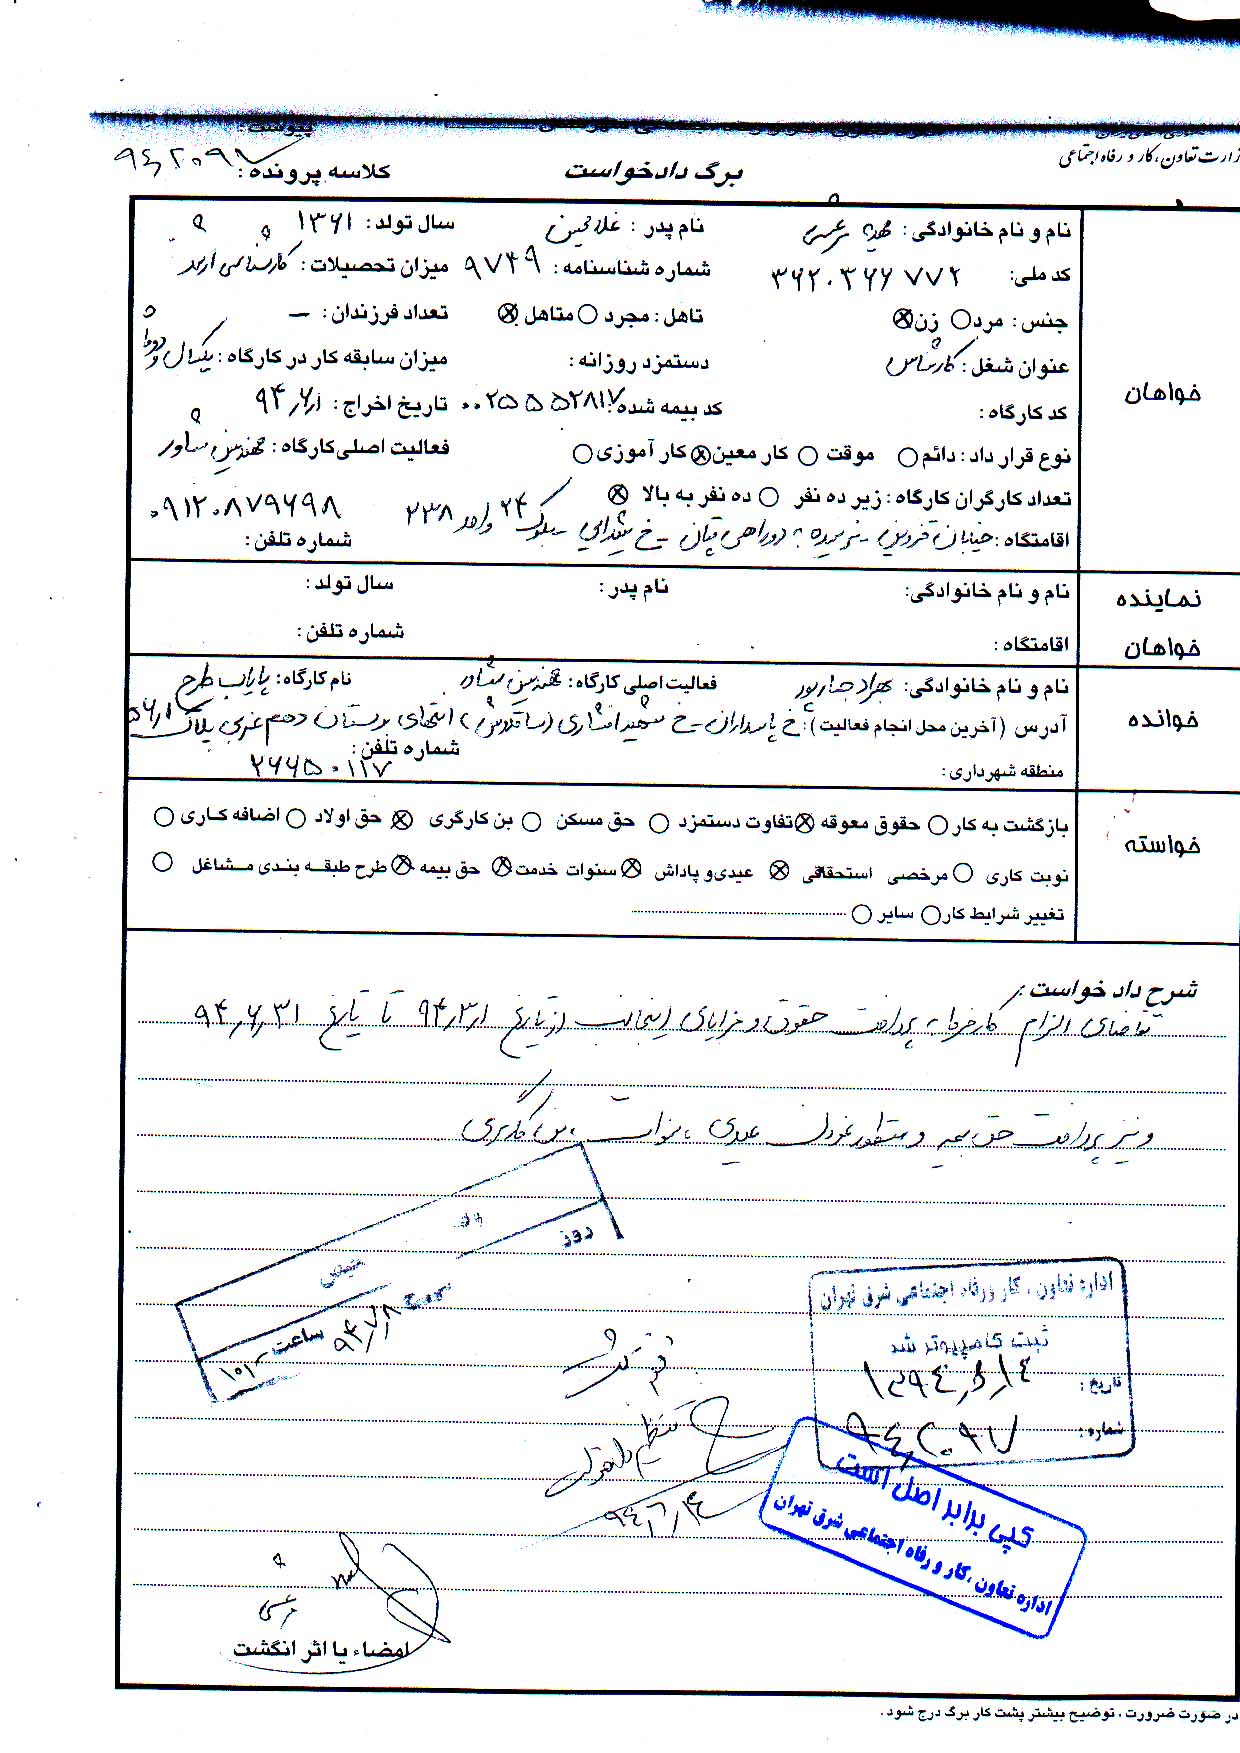 وزارت تعاون، کار و رفاه اجتماعی
پیوست:
برگ دادخواست
کلاسه پرونده:
خواهان
نام و نام خانوادگی: نام پدر: غلامحسین سال تولد: ۱۳۶۱
کد ملی: ۳۶۲۰۳۶۶۷۷۲ شماره شناسنامه: ۹۷۴۹ میزان تحصیلات: کارشناسی ارشد
جنس: مرد زن تاهل: مجرد متاهل تعداد فرزندان: –
عنوان شغل: کارشناس دستمزد روزانه: میزان سابقه کار در کارگاه: یکسال و دو ماه
کد کارگاه: کد بیمه شده: ۰۰۲۵۵۵۲۸۱۷ تاریخ اخراج: ۹۴٫۶٫۱
نوع قرار داد: دائم موقت کار معین کار آموزی فعالیت اصلی کارگاه: مهندسین مشاور
تعداد کارگران کارگاه: زیر ده نفر ده نفر به بالا ۰۹۱۲۰۸۷۹۶۹۸
اقامتگاه: خیابان قزوین - نرسیده به دوراهی قپان - خ - بلوک ۲۴ واحد ۲۳۸ شماره تلفن:
نماینده خواهان
نام و نام خانوادگی: نام پدر: سال تولد:
اقامتگاه: شماره تلفن:
خوانده
نام و نام خانوادگی: بهزاد فعالیت اصلی کارگاه: مهندسین مشاور نام کارگاه: پایاب طرح
آدرس (آخرین محل انجام فعالیت): خ پاسداران - خ شهید افشاری (ساقدوش) انتهای بوستان دهم غربی پلاک
منطقه شهرداری: شماره تلفن: ۲۶۶۵۰۱۱۷
خواسته
بازگشت به کار حقوق معوقه تفاوت دستمزد حق مسکن بن کارگری حق اولاد اضافه کاری
نوبت کاری مرخصی استحقاقی عیدی و پاداش سنوات خدمت حق بیمه طرح طبقه بندی مشاغل
تغییر شرایط کار سایر
شرح داد خواست:
تقاضای الزام کارفرما به پرداخت حقوق و مزایای اینجانب از تاریخ ۹۴٫۳٫۱ تا تاریخ ۹۴٫۶٫۳۱
و نیز پرداخت حق بیمه و منظور نمودن عیدی، سنوات، بن کارگری
روز
مورخ ۹۴٫۷٫۸
ساعت ۱۰٫۳۰
اداره تعاون، کار و رفاه اجتماعی شرق تهران
ثبت کامپیوتر شد
تاریخ: ۱۳۹۴٫۶٫۱۴
شماره: ۹۴٫۲۰۹۷
کپی برابر اصل است
اداره تعاون، کار و رفاه اجتماعی شرق تهران
۹۴٫۶٫۱۴
امضاء یا اثر انگشت
در صورت ضرورت، توضیح بیشتر پشت کار برگ درج شود.